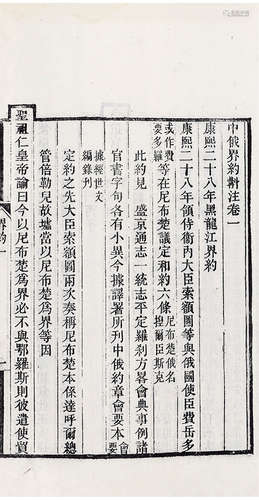 中俄界約斠注卷一
康熙二十八年黑龍江界約
康熙二十八年領侍衛內大臣索額圖等與俄國使臣費岳多
或作費
要多羅
等在尼布楚議定和約六條
尼布楚俄名
揑爾臣斯克
此約見 盛京通志一統志平定羅刹方畧會典事例諸
官書字句各有小異今據譯署所刊中俄約章會要本
會要
據經世文
編錄刊
定約之先大臣索額圖兩次奏稱尼布楚本係達呼爾總
管倍勒兒故墟當以尼布楚爲界等因
聖祖仁皇帝諭曰今以尼布楚爲界必不與鄂羅斯則彼遣使貿
界約一